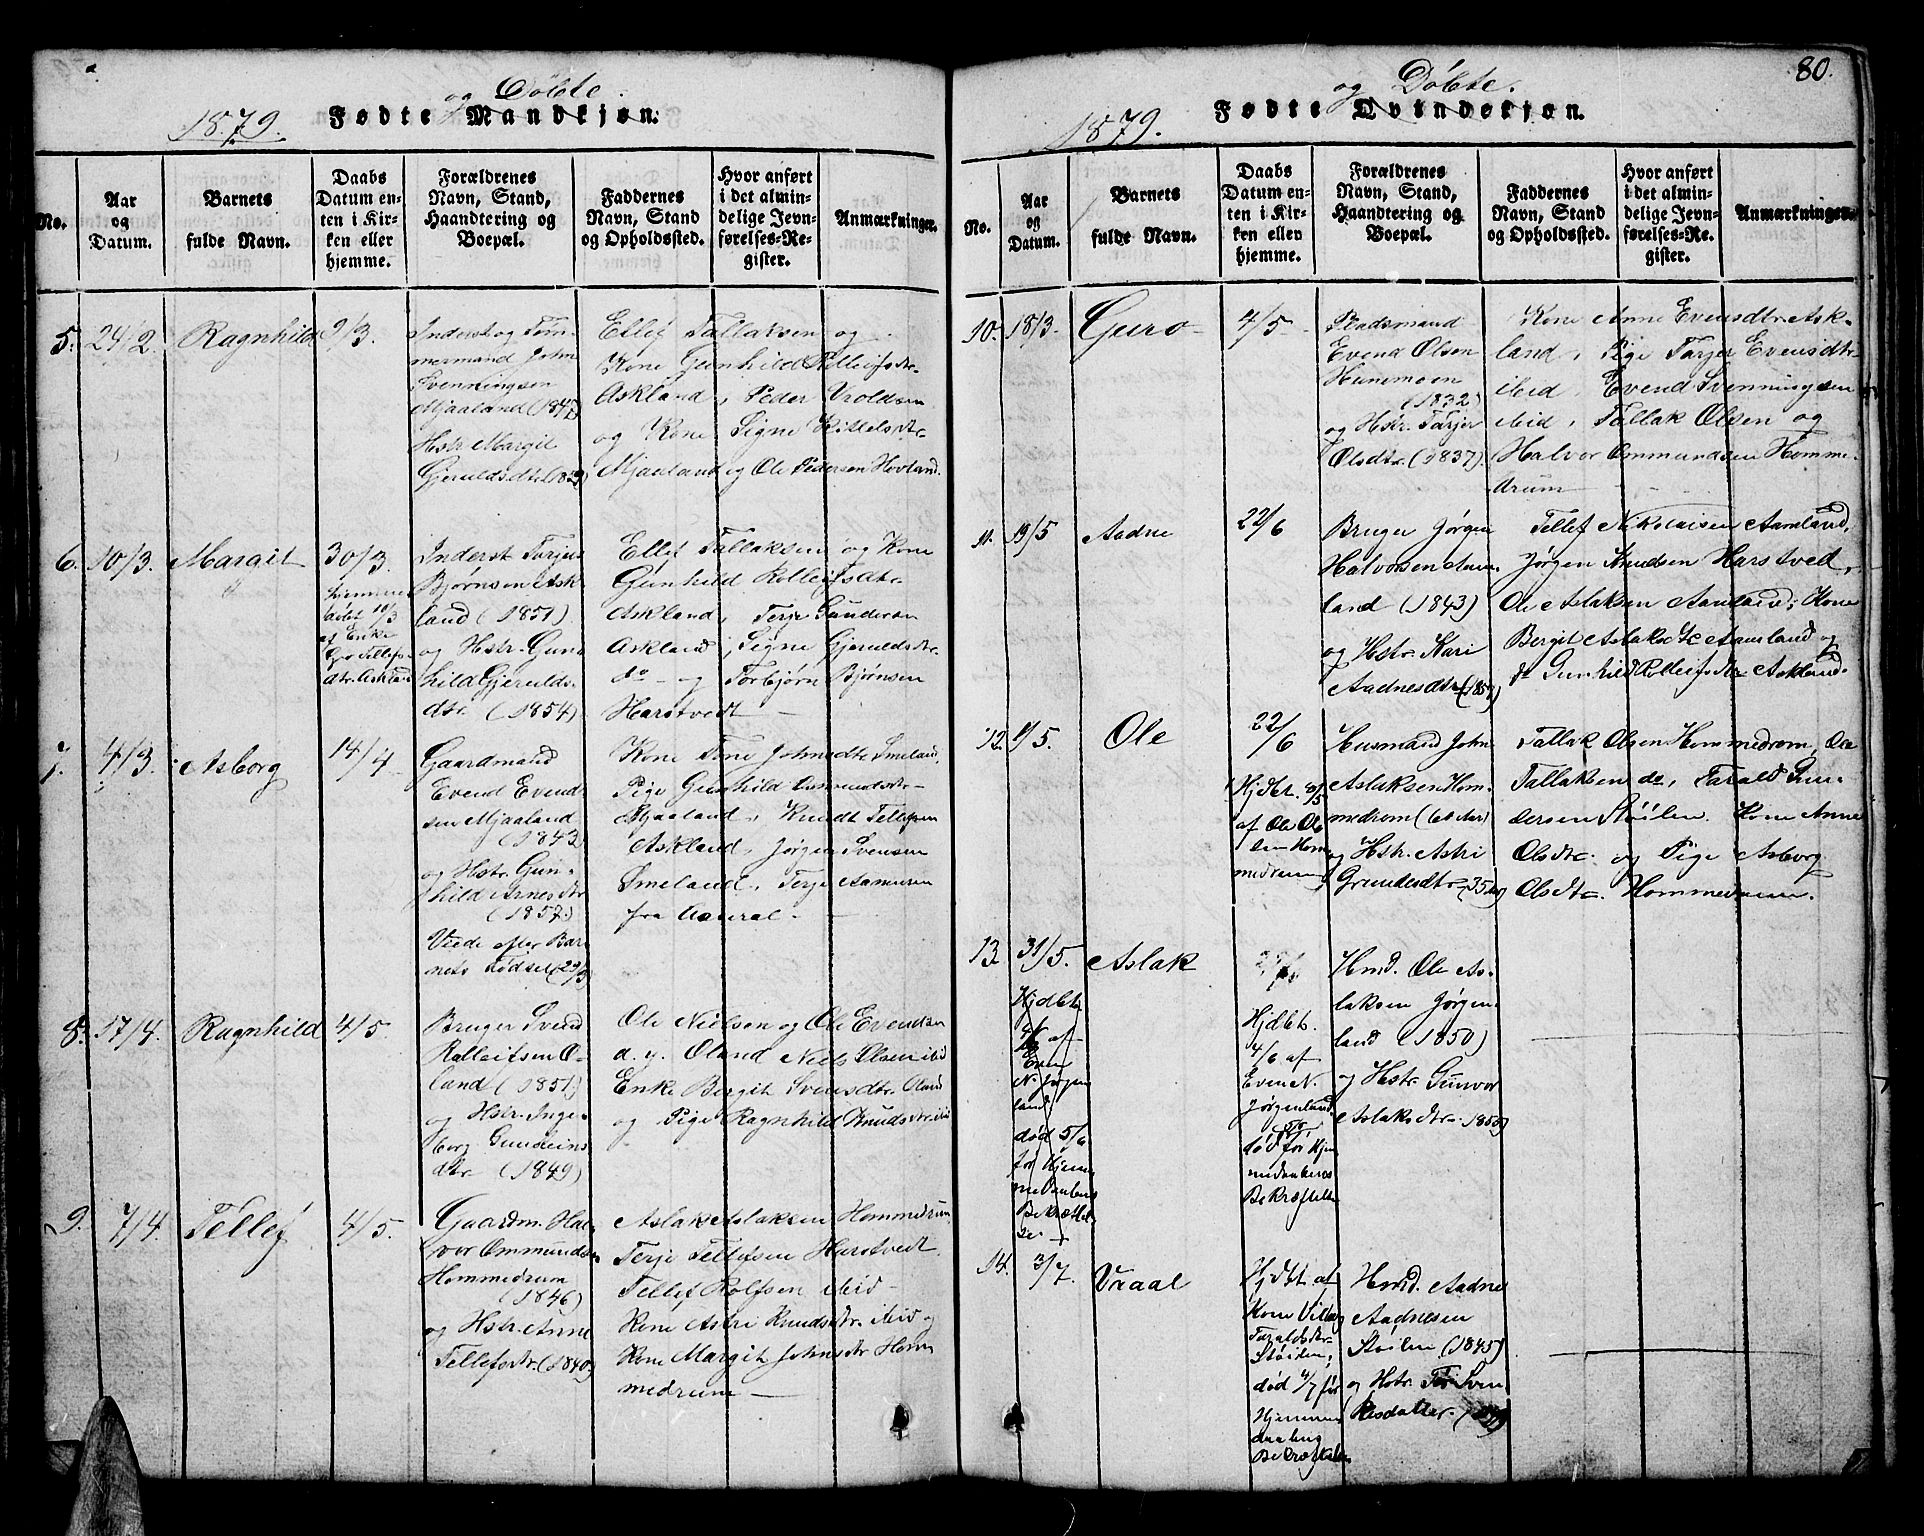 80.
og Døbte.
1879. Fødte Mandkjøn.
No.
Aar
og
Datum.
Barnets
fulde Navn.
Daabs
Datum en-
ten i Kir-
ken eller
hjemme.
Forældrenes
Navn, Stand,
Haandtering og
Boepæl.
Faddernes
Navn, Stand
og Opholdssted.
Hvor anført
i det almin-
delige Jevn-
førelses-Re-
gister.
Anmærkninger.
5. 24/2. Ragnhild 9/3.
Inderst og Tøm-
mermand John
Svenningsen
Mjaaland
Hstr. Margit
Gjeruldsdtr.
Ellef Tallaksen og
Kone Gunhild Rolleifsdtr.
Askland, Peder Vroldsen
og Kone Signe Kittelsdtr.
Mjaaland og Ole Pedersen Hovland.
6. 10/3. Margit 30/3.
hjemme
døbt 10/3
af Enke
Gro Tellefs-
dtr. Askland
Inderst Torjus
Bjørnsen Ask-
land (1851)
og Hstr. Gun-
hild Gjerulds-
dtr. (1854)
Ellef Tallaksen og Kone
Gunhild Rolleifsdtr.
Askland, Terje Gundersen
Askland, Signe Gjeruldsdtr.
do - og Torbjørn Bjørnsen
Harstvedt -
7. 4/3. Asborg 14/4
Gaardmand
Evend Evend-
sen Mjaaland
(1843
og Hstr. Gun-
hild Arnesdtr.
(1857)
Viede efter Bar-
nets Fødsel (23/3)
Kone Tone Johnsdtr. Smeland,
Pige Gunhild Ommundsdtr.
Mjaaland, Knudt Tellefsen
Askland, Jørgen Svensen
Smeland, Terje Aamunsen
fra
8. 17/4. Ragnhild 4/5.
Bruger Svend
Rolleifsen O-
land (1851)
og Hstr. Inge-
borg Gundeins
dtr. (1849)
Ole Nielsen og Ole Evendsen
d. y. Oland Niels Olsen ibid
Enke Bergit Svensdtr. Oland
og Pige Ragnhild Knudsdtr. ibid
9. 7/4. Tellef 4/5.
Gaardm. Hal-
vor Ommunds-
Hommedrum
(1846)
og Hstr. Anne
Tellefsdtr. (1840)
Aslak Aslaksen Hommedrum,
Terje Tellefsen Harstvedt.
Tellef Rolfsen ibid -
Kone Astri Knudsdtr. ibid og
Kone Margit Johnsdtr. Hom
medrum -
og Døbte.
1879. Fødte Qvindekjøn.
No.
Aar
og
Datum.
Barnets
fulde Navn.
Daabs
Datum en-
ten i Kir-
ken eller
hjemme.
Forældrenes
Navn, Stand,
Haandtering og
Boepæl.
Faddernes
Navn, Stand
og Opholdssted.
Hvor anført
i det almin-
delige Jevn-
førelses-Re-
gister.
Anmærkninger.
10. 18/3. Guro 4/5
Pladsmand
Evend Olsen
Hunemoen
(1832)
og Hstr. Torjer
Olsdtr. (1837).
Kone Anne Evensdtr. Ask-
land, Pige Torjer Evensdtr.
ibid, Evend Svenningsen
ibid, Tallak Olsen og
Halvor Ommundsen Homme-
drum
11. 19/5 Aadne 22/6
Bruger Jørgen
Halvorsen Aam-
land (1843)
og Hstr. Kari
Aadnesdtr.
Tellef Nikolaisen Aamland,
Jørgen Knudsen Harstved,
Ole Aslaksen Aamland, Kone
Bergit Aslaksdtr. Aamland og
do Gunhild Rolleifsdtr. Askland.
12. 1/5. Ole 22/6
Hjdbt.
af Ole Ol-
sen Hom
medrum
Husmand John
Aslaksen Hom-
medrom (60 Aar)
og Hstr. Astri
Grundesdtr. (35 Aar)
Tallak Olsen Hommedrom, Ole
Tallaksen do, Tarald Gun-
dersen Støilen. Kone Anne
Olsdtr. og Pige Asborg
Olsdtr. Hommedrum.
13. 31/5. Aslak
Hjdbt.
af
Even
N. Jørgen
land
død 5/6
før Hjem
medaabens
Bekræftel-
se
Hjdbt.
4/6 af
Even N.
Jørgenland.
død 5/6
før Hjem
medaabens
Bekræftelse
Hmd. Ole As-
laksen Jørgen-
land (1850)
og Hstr. Gunvor
Aslaksdtr.
14. 3/7. Vraal
Hjdbt af
Kone Villeg
Taraldsdtr.
Støilen,
død 4/7 før
Hjemme
daabens
Bekræftelse
Hmd. Aadne
Aadnesen
Støilen (1845)
og Hstr. Tor Sven
kesdatter